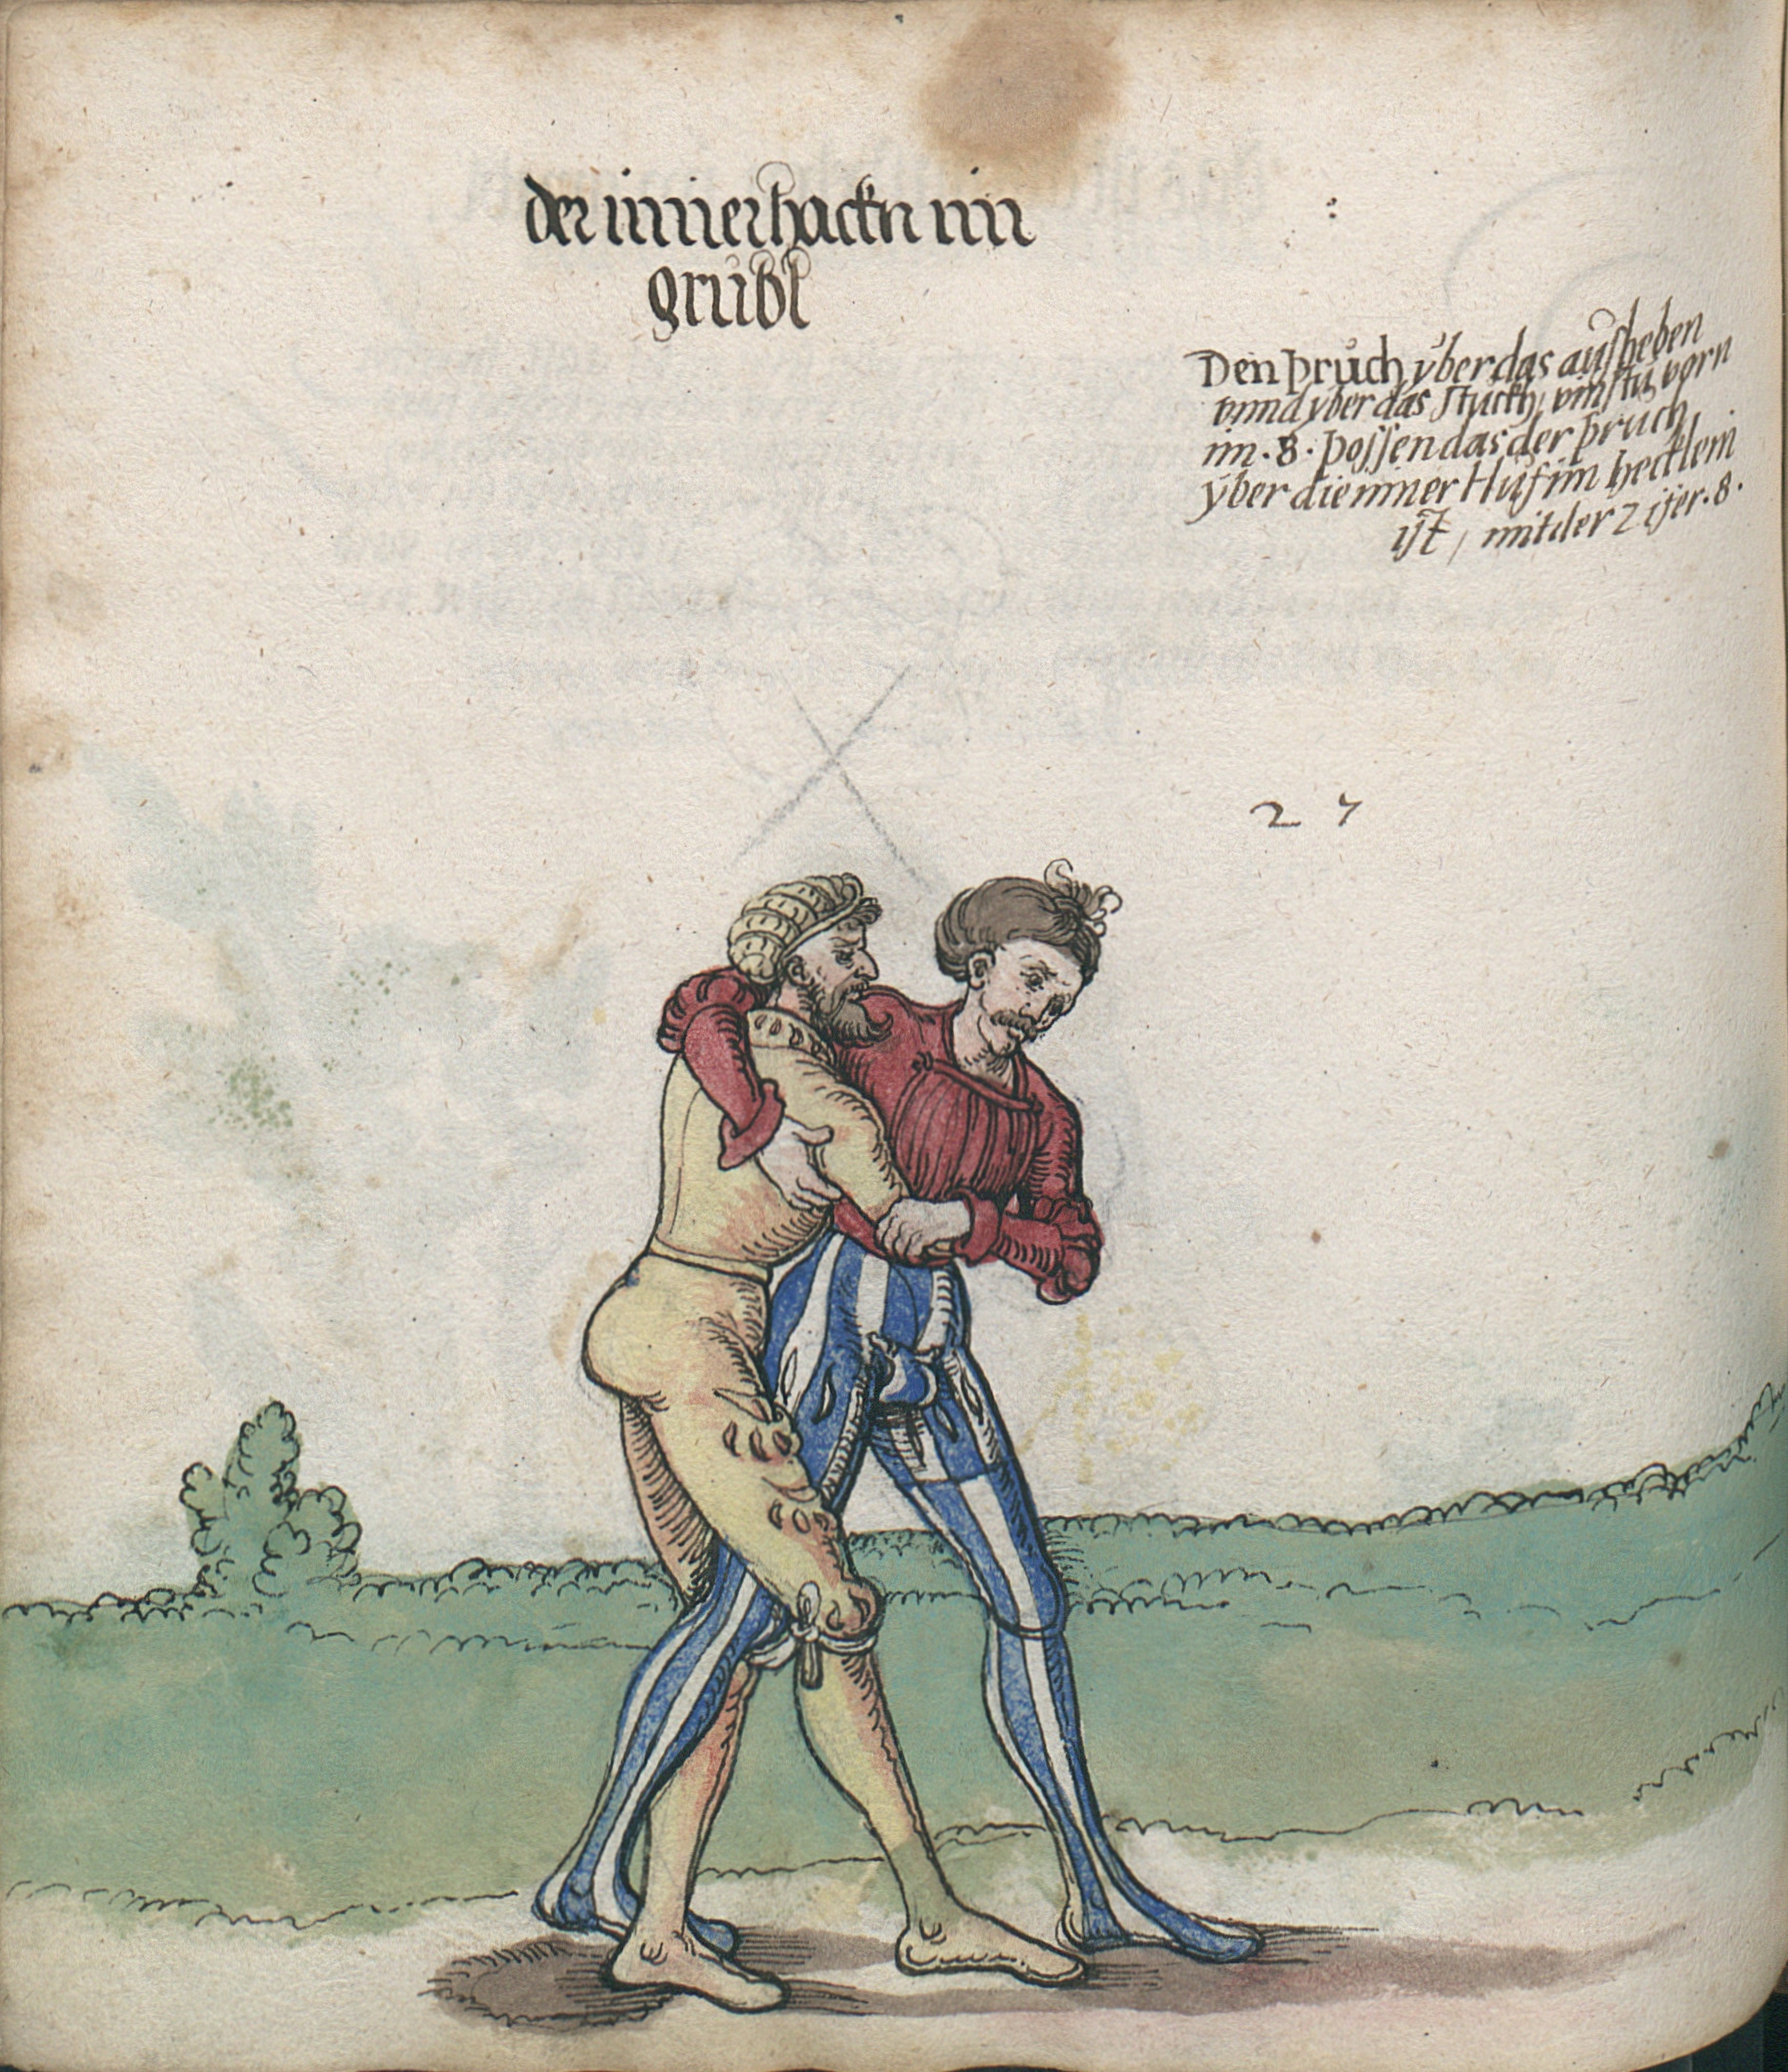 der inner hackn im
grúbl
Den prúch ÿber das aúsheben
vnnd ÿber das stuckh, vinstu vorn
im .8. possen das der prúch
ÿber die inner Húf im hecklein
ist, mit der Zifer .8.
27